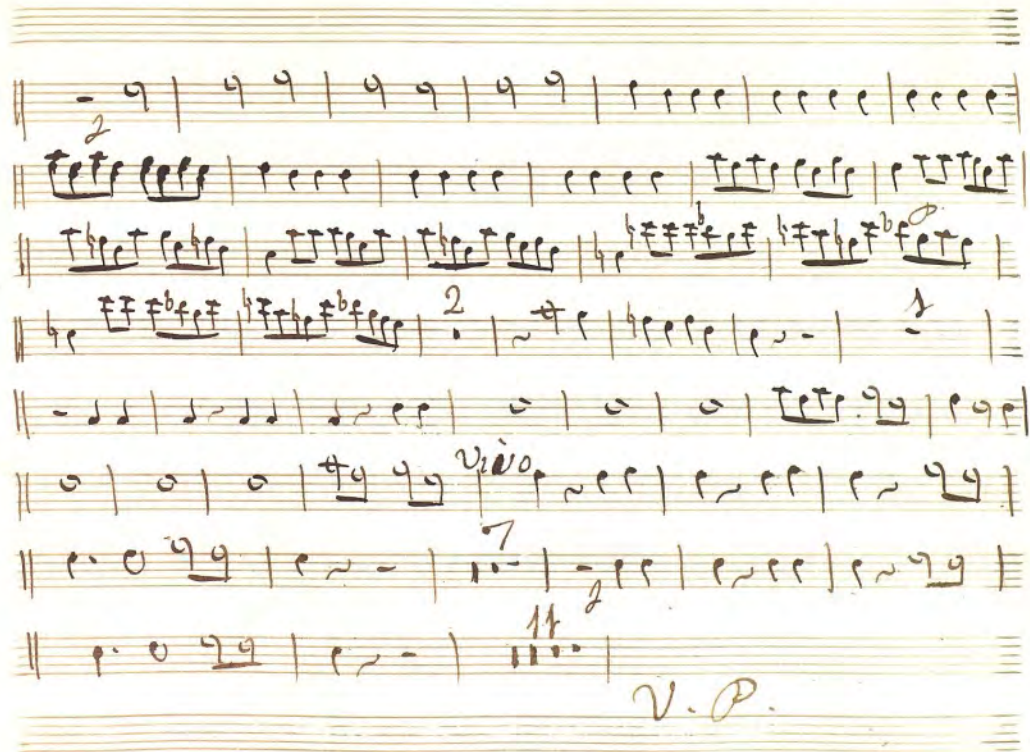 2
P
2
1
Vivo
7
2
11
V. P.